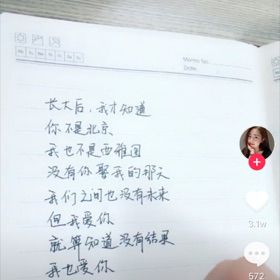 Memo No.
Date
长大后，我才知道
你不是北京
我也不是西雅图
没有你娶我的那天
我们之间也没有未来
但我爱你
就算知道没有结果
我也爱你
3.1w
572